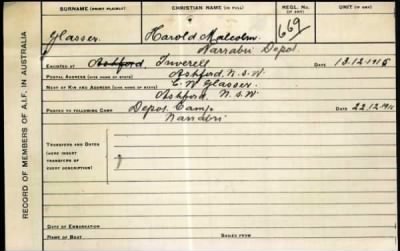 SURNAME (PRINT PLAINLY) CHRISTIAN NAME (IN FULL) REGL. No. (IF ANY) UNIT (IF ANY)
Glasser. Harold Malcolm. 669
Narrabri Depot.
ENLISTED AT Ashford, Inverell DATE 13.12.1915
POSTAL ADDRESS (GIVE NAME OF STATE) Ashford, N.S.W.
NEXT OF KIN AND ADDRESS (GIVE NAME OF STATE) C. W. Glasser.
Ashford, N.S.W.
POSTED TO FOLLOWING CAMP Depot Camp DATE 22.12.
Narrabri
TRANSFERS AND DATES
(HERE INSERT
TRANSFERS OF
EVERY DESCRIPTION)
DATE OF EMBARKATION
NAME OF BOAT SAILED FROM
RECORD OF MEMBERS OF A.I.F. IN AUSTRALIA